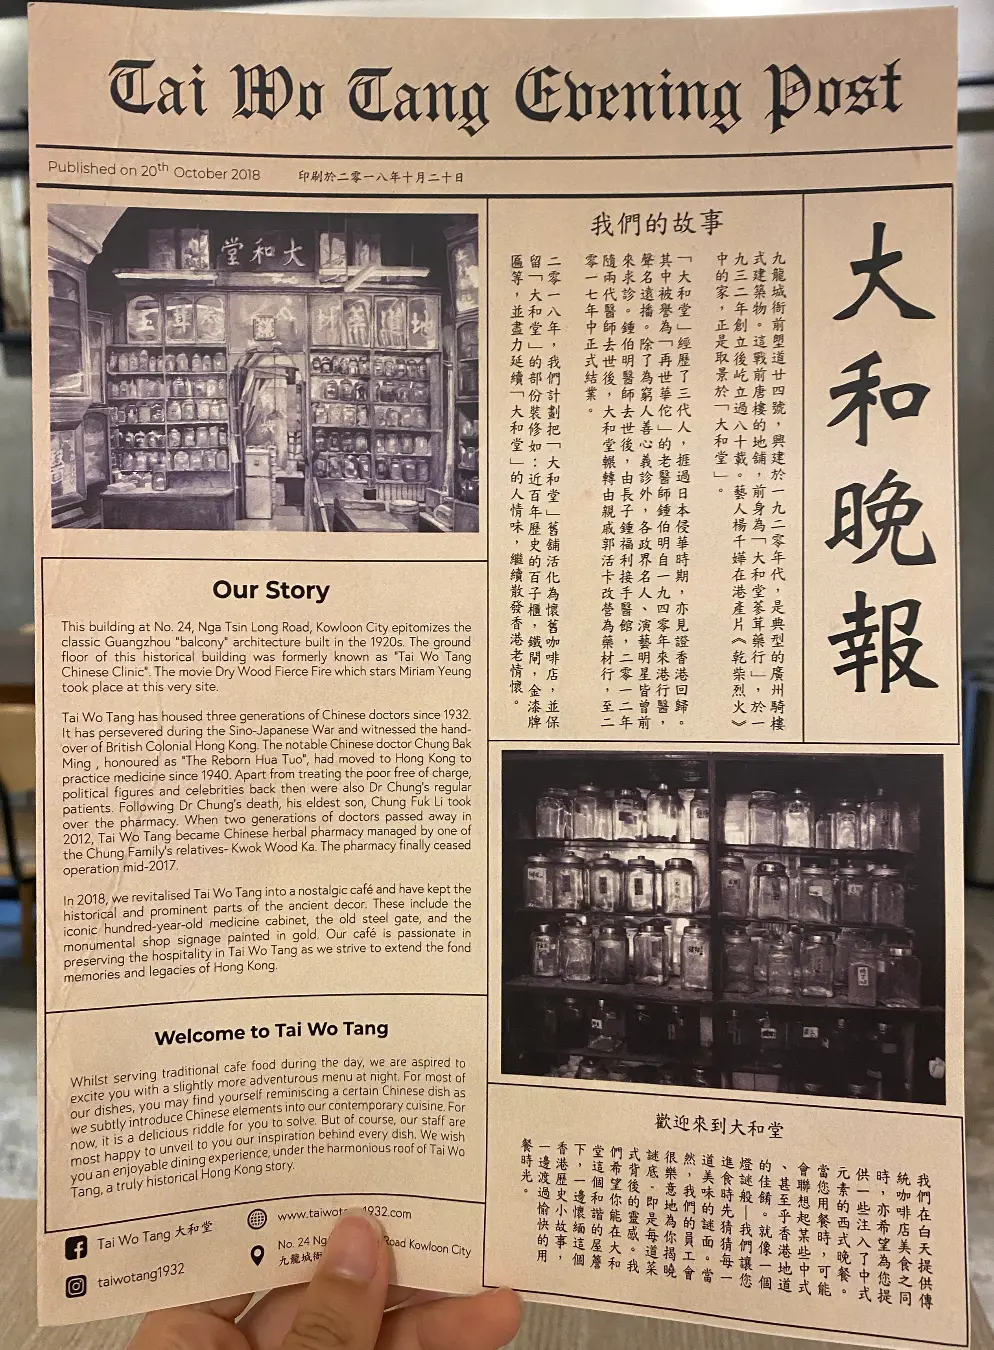 Tai Wo Tang Evening Post
Published on 20th October 2018
印刷於二零一八年十月二十日
堂和大
大和晚報
我們的故事
九龍城衙前塱道廿四號，興建於一九二零年代，是典型的廣州騎樓
式建築物。這戰前唐樓的地舖，前身為「大和堂蔘茸藥行」，於一
九三二年創立後屹立過八十載。藝人楊千嬅在港產片《乾柴烈火》
中的家，正是取景於「大和堂」。
「大和堂」經歷了三代人，捱過日本侵華時期，亦見證香港回歸。
其中被譽為「再世華佗」的老醫師鍾伯明自一九四零年來港行醫，
聲名遠播。除了為窮人善心義診外，各政界名人、演藝明星皆曾前
來求診。鍾伯明醫師去世後，由長子鍾福利接手醫館，二零一二年
隨兩代醫師去世後，大和堂輾轉由親戚郭活卡改營為藥材行，至二
零一七年中正式結業。
二零一八年，我們計劃把「大和堂」舊舖活化為懷舊咖啡店，並保
留「大和堂」的部份裝修如：近百年歷史的百子櫃，鐵閘，金漆牌
匾等，並盡力延續「大和堂」的人情味，繼續散發香港老情懷。
Our Story
This building at No. 24, Nga Tsin Long Road, Kowloon City epitomizes the
classic Guangzhou "balcony" architecture built in the 1920s. The ground
floor of this historical building was formerly known as "Tai Wo Tang
Chinese Clinic". The movie Dry Wood Fierce Fire which stars Miriam Yeung
took place at this very site.
Tai Wo Tang has housed three generations of Chinese doctors since 1932.
It has persevered during the Sino-Japanese War and witnessed the hand-
over of British Colonial Hong Kong. The notable Chinese doctor Chung Bak
Ming , honoured as "The Reborn Hua Tuo", had moved to Hong Kong to
practice medicine since 1940. Apart from treating the poor free of charge,
political figures and celebrities back then were also Dr Chung's regular
patients. Following Dr Chung's death, his eldest son, Chung Fuk Li took
over the pharmacy. When two generations of doctors passed away in
2012, Tai Wo Tang became Chinese herbal pharmacy managed by one of
the Chung Family's relatives- Kwok Wood Ka. The pharmacy finally ceased
operation mid-2017.
In 2018, we revitalised Tai Wo Tang into a nostalgic café and have kept the
historical and prominent parts of the ancient decor. These include the
iconic hundred-year-old medicine cabinet, the old steel gate, and the
monumental shop signage painted in gold. Our café is passionate in
preserving the hospitality in Tai Wo Tang as we strive to extend the fond
memories and legacies of Hong Kong.
Welcome to Tai Wo Tang
Whilst serving traditional cafe food during the day, we are aspired to
excite you with a slightly more adventurous menu at night. For most of
our dishes, you may find yourself reminiscing a certain Chinese dish as
we subtly introduce Chinese elements into our contemporary cuisine. For
now, it is a delicious riddle for you to solve. But of course, our staff are
most happy to unveil to you our inspiration behind every dish. We wish
you an enjoyable dining experience, under the harmonious roof of Tai Wo
Tang, a truly historical Hong Kong story.
歡迎來到大和堂
我們在白天提供傳
統咖啡店美食之同
時，亦希望為您提
供一些注入了中式
元素的西式晚餐。
當您用餐時，可能
會聯想起某些中式
、甚至乎香港地道
的佳餚。就像一個
燈謎般—我們讓您
進食時先猜猜每一
道美味的謎面。當
然，我們的員工會
很樂意地為你揭曉
謎底-即是每道菜
式背後的靈感。我
們希望你能在大和
堂這個和諧的屋簷
下，一邊懷緬這個
香港歷史小故事，
一邊渡過愉快的用
餐時光。
Tai Wo Tang 大和堂
taiwotang1932
www.taiwota 1932.com
No. 24 Ng Road Kowloon City
九龍城衙